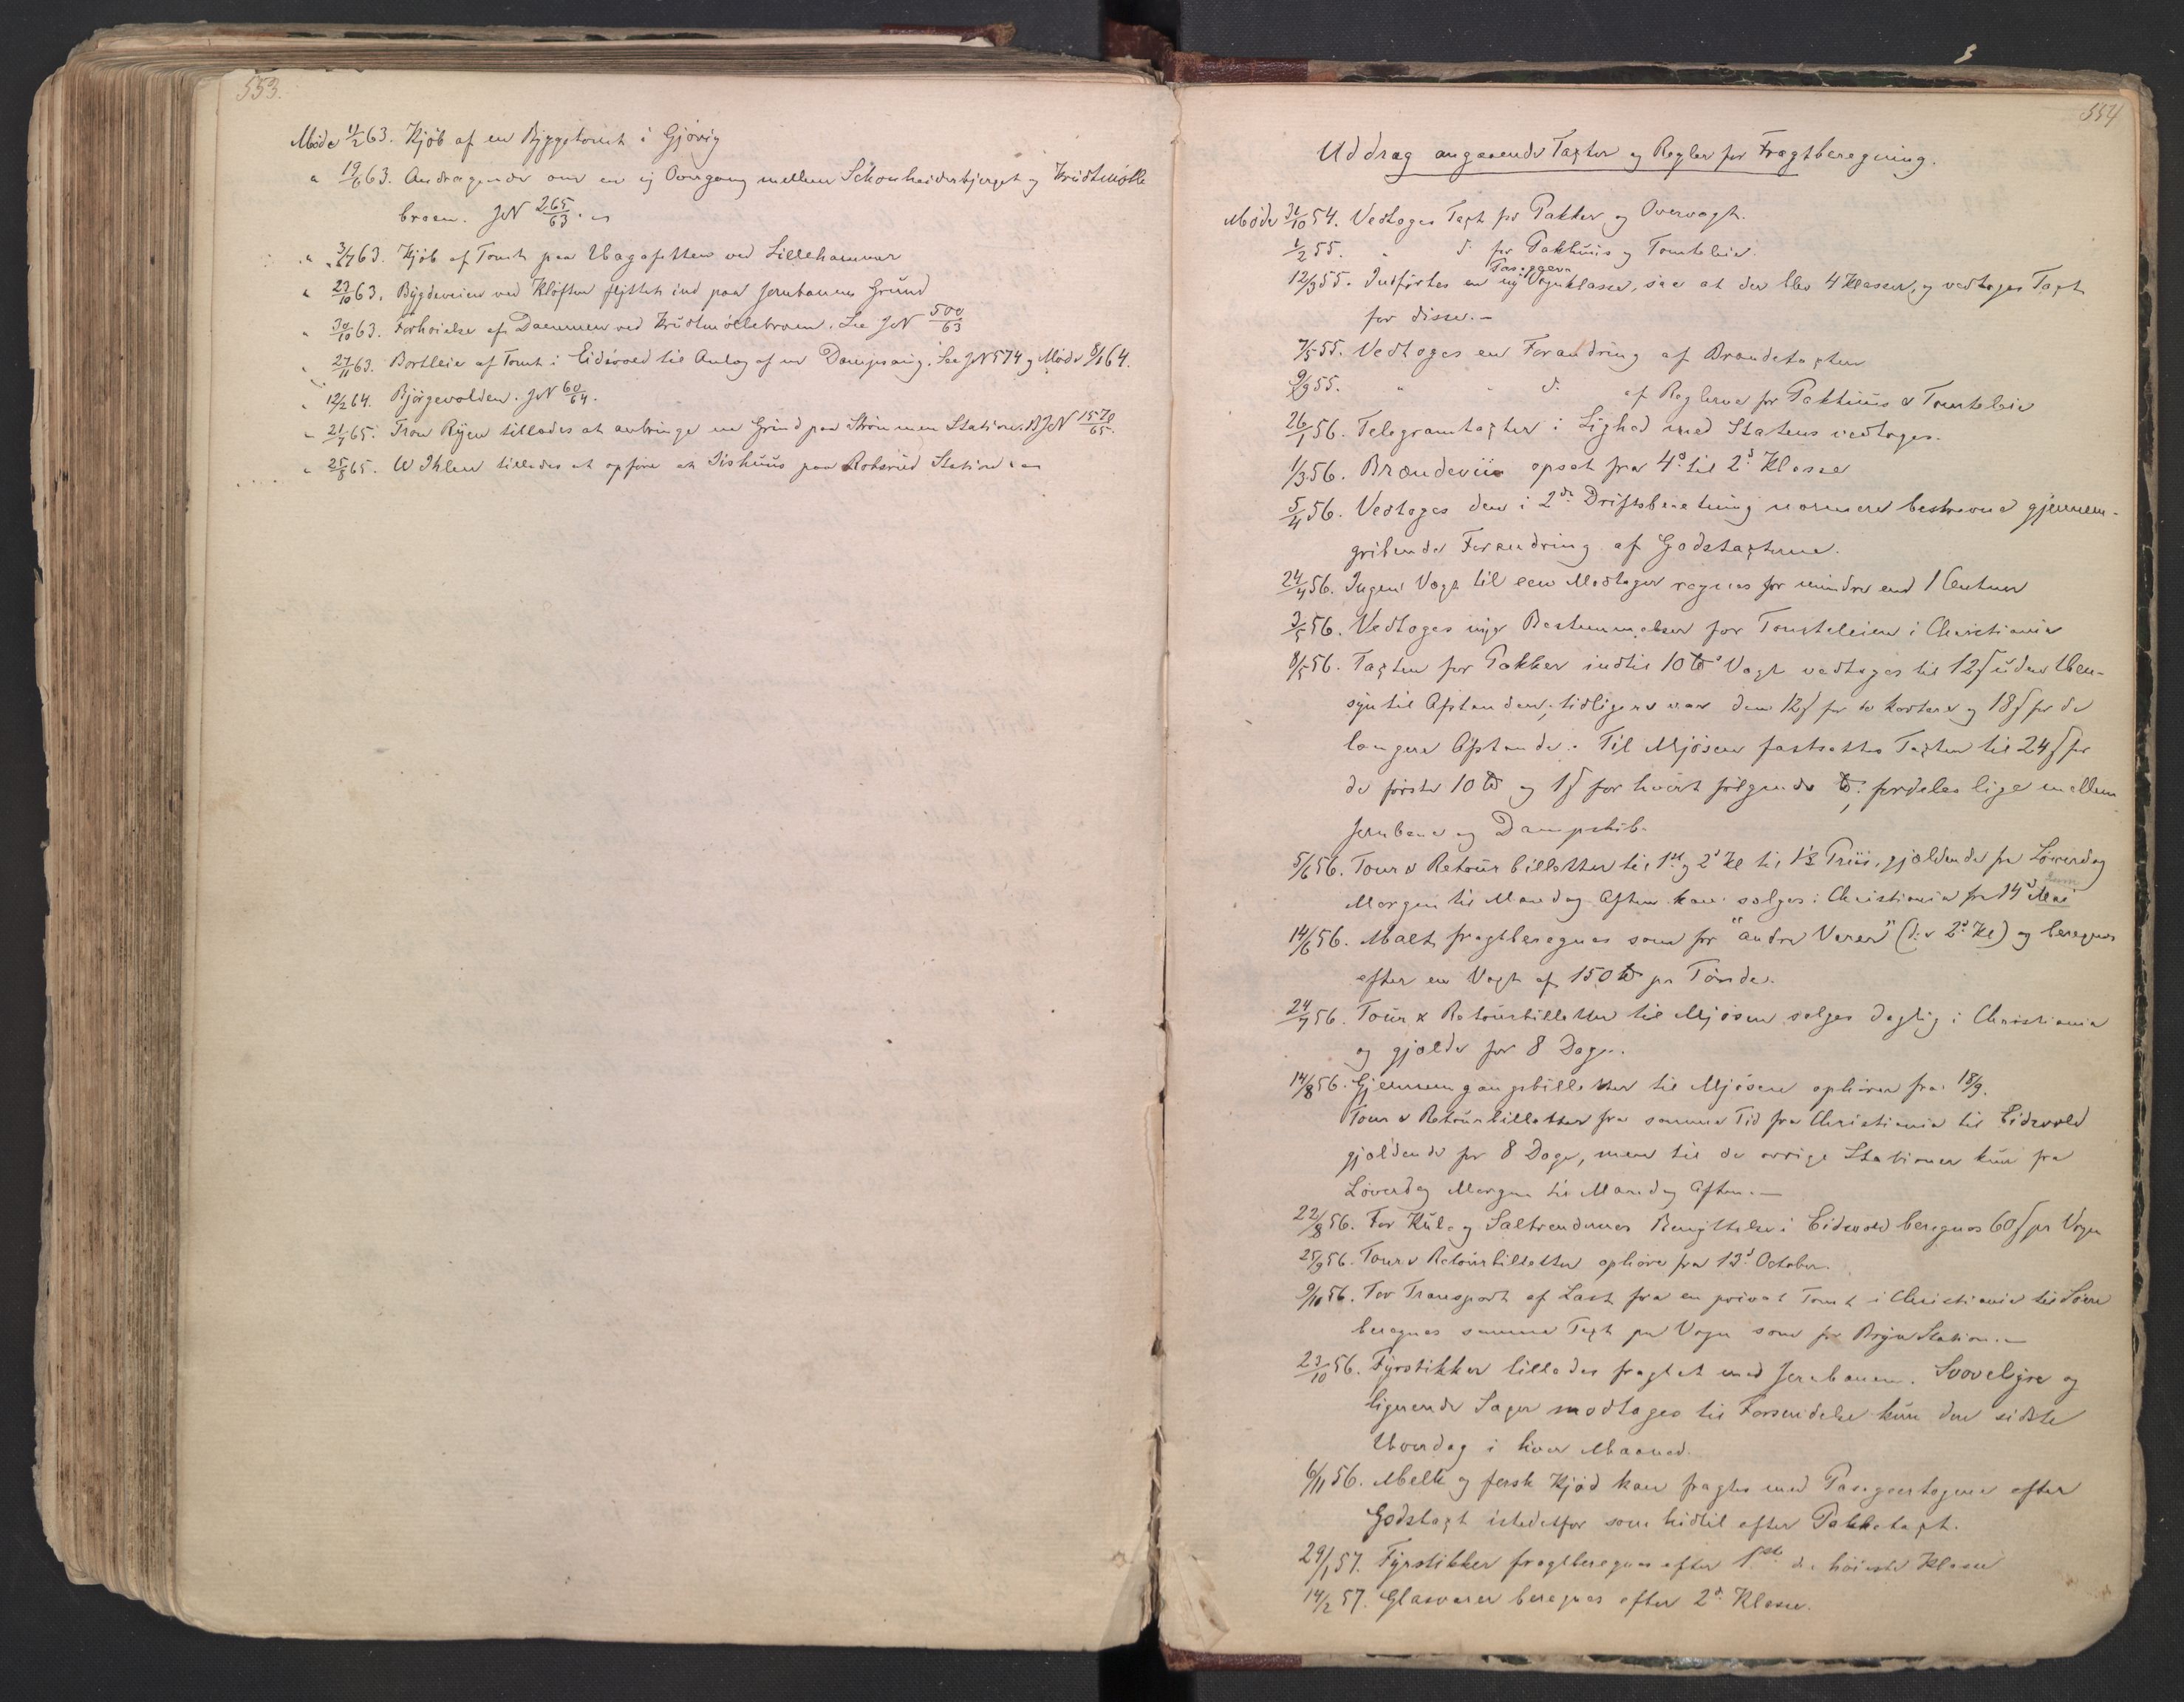 553.
Møde 11/2 63. Kjøb af en Byggetomt i Gjøvig
" 19/6 63. Andragende om en ny Overgang mellem Schønheidersbjerget og Krudtmølle
broen. JN 265/63.
" 3/7 63. Kjøb af Tomt paa ved Lillehammer
" 29/10 63. Bygdeveien ved Kløften flyttet ind paa Jernbanens Grund
" 30/10 63. Forhøielse af Dammen ved Krudtmøllebroen. See JN 500/63
" 27/11 63. Bortleie af Tomt i Eidsvold til Anlæg af en Dampsaug. See JN 574 og Møde 8/1 64.
" 12/2 64. Bjørgevolden. JN 60/64.
" 21/7 65. Tron Ryen tillades at anbringe en Grind paa Strømmen Station. BJN 1570/65.
" 25/8 65. W Ihlen tillades at opføre et Iishuus paa Robsrud Station
554
Uddrag angaaende Taxter og Regler for Fragtberegning.
Møde 31/10 54. Vedtoges Taxt for Pakker og Overvægt.
1/2 55. " d: for Pakhuus og Tomteleie.
12/3 55. Indførtes en ny Passager Vognklasse, saa at der blev 4 Klasser, og vedtoges Taxt
for disse.-
7/5 55. Vedtoges en Forandring af Brændetaxten
9/9 55. " " d: af Reglerne for Pakhuus & Tomteleie
26/1 56. Telegramtaxter i Lighed med Statens vedtoges.
1/3 56. Brændeviin opsat fra 4d til 2d Klasse
5/4 56. Vedtoges den i 2den Driftsberetning nærmere beskrevne gjennem-
gribende Forandring af Godstaxterne.
24/4 56. Ingen Vægt til een Modtager regnes for mindre end 1 Centner
3/5 56. Vedtoges nye Bestemmelser for Tomteleien i Christiania
8/5 56. Taxten for Pakker indtil 10 ℔s Vægt vedtoges til 12 ß uden Hen-
syn til Afstanden; tidligere var den 12 ß for de kortere og 18 ß for de
længere Afstande. Til Mjøsen fastsattes Taxten til 24 ß for
de første 10 ℔ og 1 ß for hvert følgende ℔; fordeles lige mellem
Jernbane og Dampskib.
5/6 56. Tour & Retour billetter til 1st og 2d Kl til 1½ Priis, gjældende fra Løverdag
Morgen til Mandag Aften kan sælges i Christiania fra 14d Mai
14/6 56. Malt fragtberegnes som for "andre Varer" (d: v 2d Kl) og beregnes
efter en Vægt af 150 ℔ pr Tønde.
24/7 56. Tour & Retourbilletter til Mjøsen sælges daglig i Christiania
og gjælde for 8 Dage.
14/8 56. Gjennemgangsbilletter til Mjøsen ophører fra 18/9.
Tour & Retourbilletter fra samme Tid fra Christiania til Eidsvold
gjældende for 8 Dage, men til de øvrige Stationer kun fra
Løverdag Morgen til Mandag Aften.-
22/8 56. For Kul og Saltrendernes Benyttelse i Eidsvold beregnes 60 ß pr Vogn
25/9 56. Tour & Retourbilletter ophøre fra 13d October.
9/10 56. For Transport af Last fra en privat Tomt i Christiania til Søen
beregnes samme Taxt pr Vogn som for Bryn Station.-
23/10 56. Fyrstikker tillades fragtet med Jernbanen. Svovelsyre og
lignende Sager modtages til Forsendelse kun den sidste
Hverdag i hver Maaned.
6/11 56. Melk og fersk Kjød kan fragtes med Passagertogene efter
Godstaxt istedetfor som hidtil efter Pakketaxt.
29/1 57. Fyrstikker fragtberegnes efter 1ste d. høieste Klasse
14/2 57. Glasvarer beregnes efter 2d Klasse.